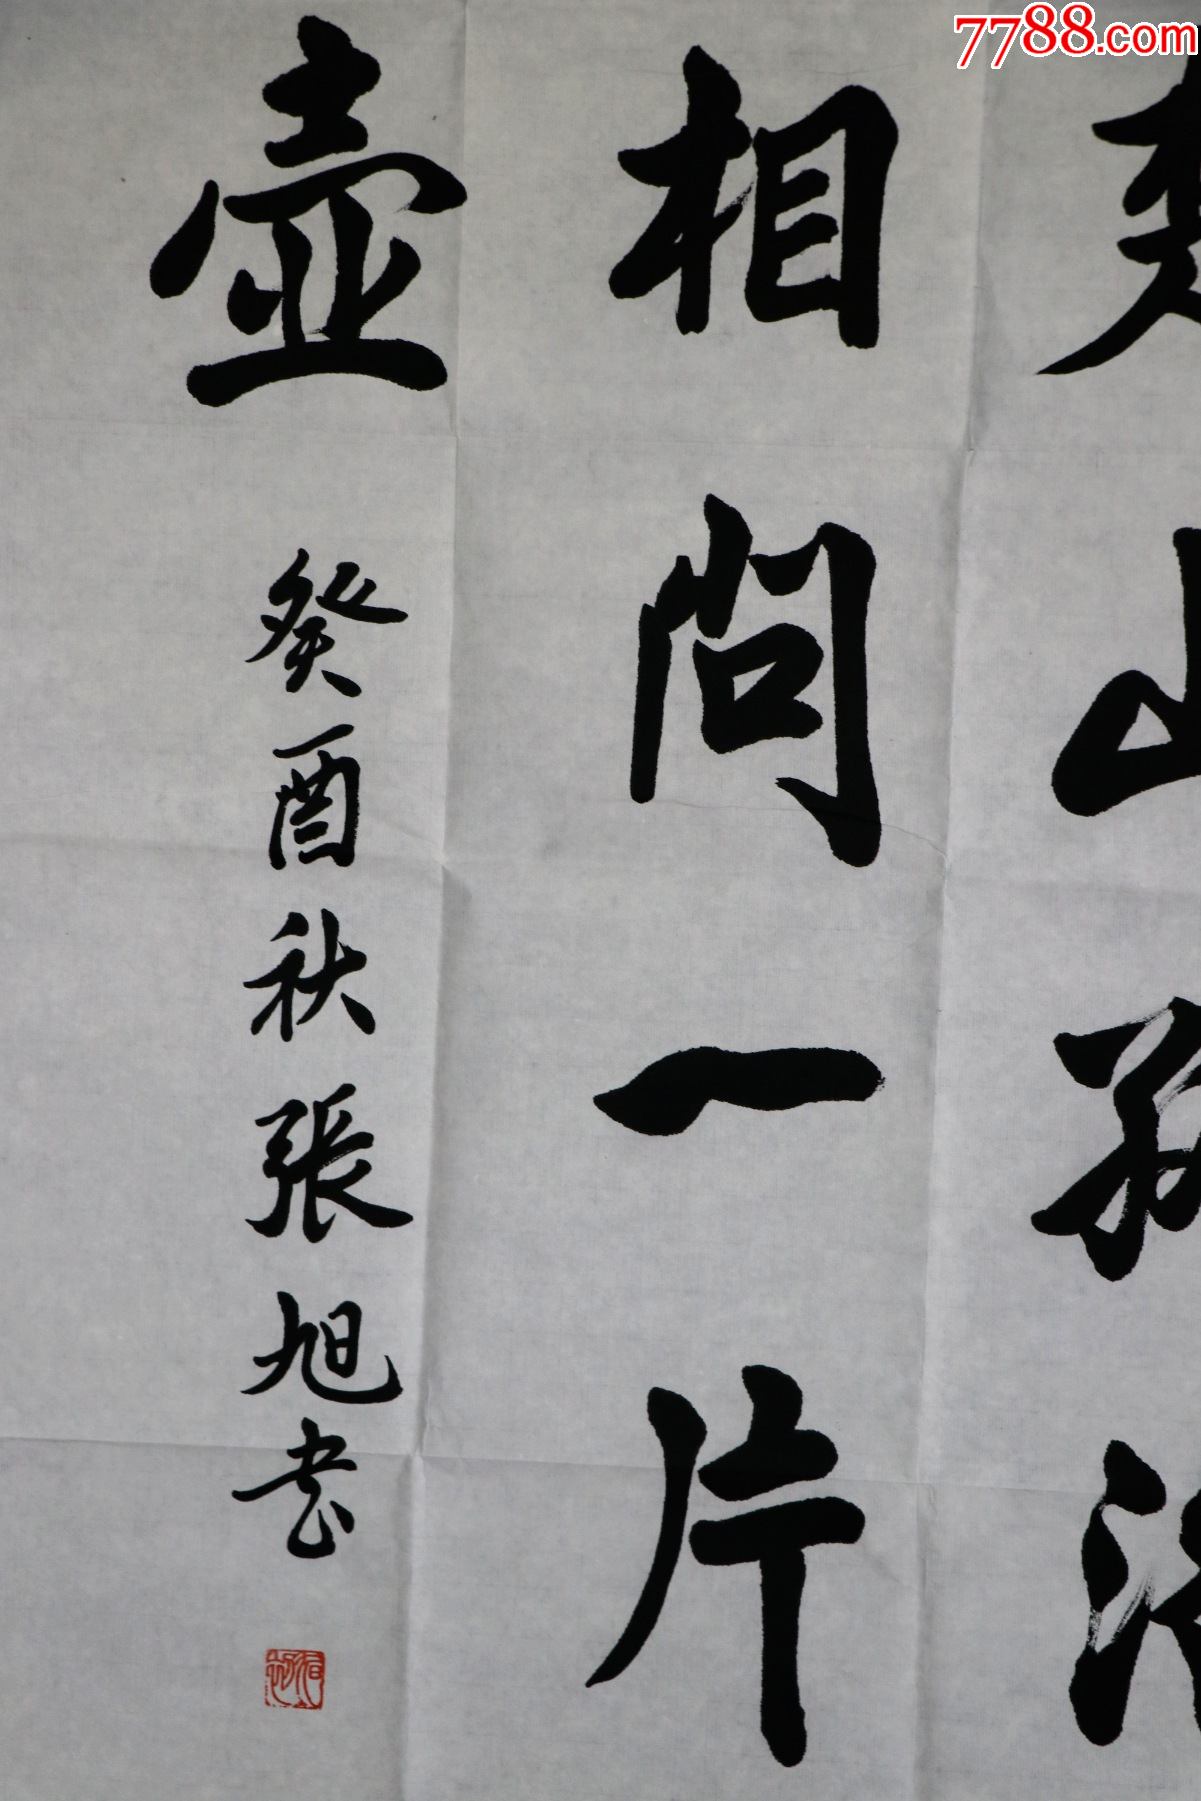 7788.com
相問一片
壺
癸酉秋張旭書